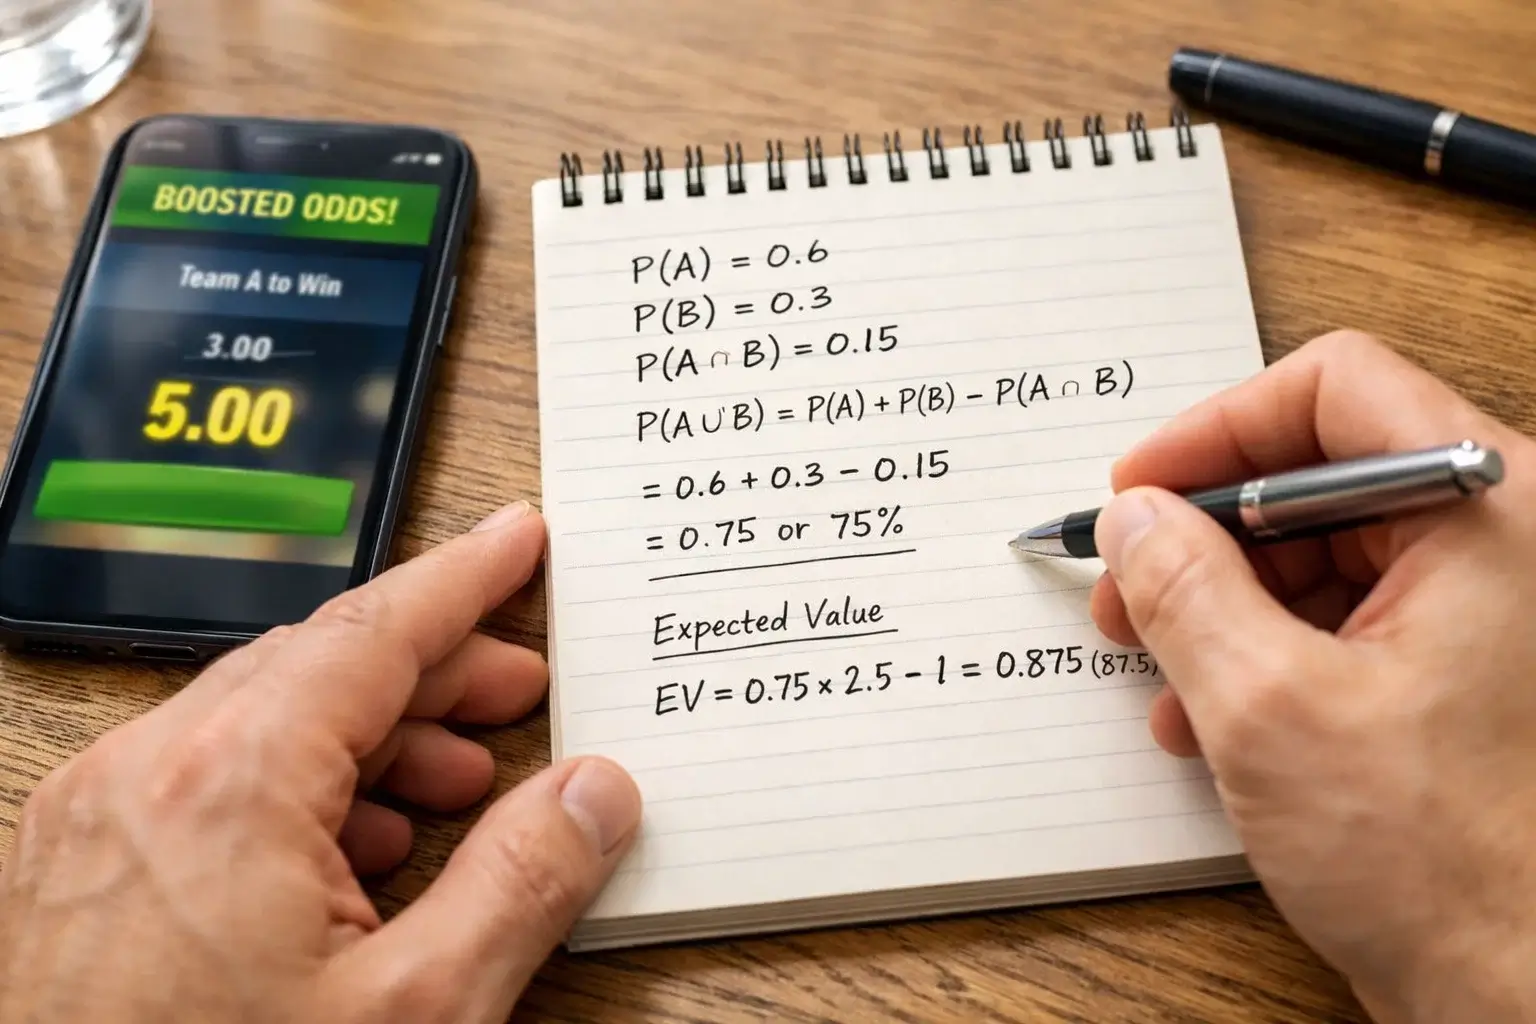 BOOSTED ODDS!
Team A to Win
3.00
5.00
P(A) = 0.6
P(B) = 0.3
P(A ∩ B) = 0.15
P(A ∪ B) = P(A) + P(B) - P(A ∩ B)
= 0.6 + 0.3 - 0.15
= 0.75 or 75%
Expected Value
EV = 0.75 × 2.5 - 1 = 0.875 (87.5)